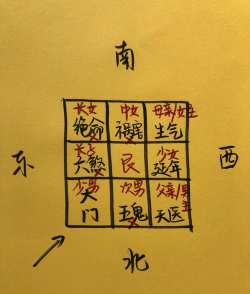 南
长女 中女 母亲/女主
绝命 祸害 生气
东
长子 艮 少女
六煞 延年
西
少男 次男 父亲/男主
大门 五鬼 天医
北